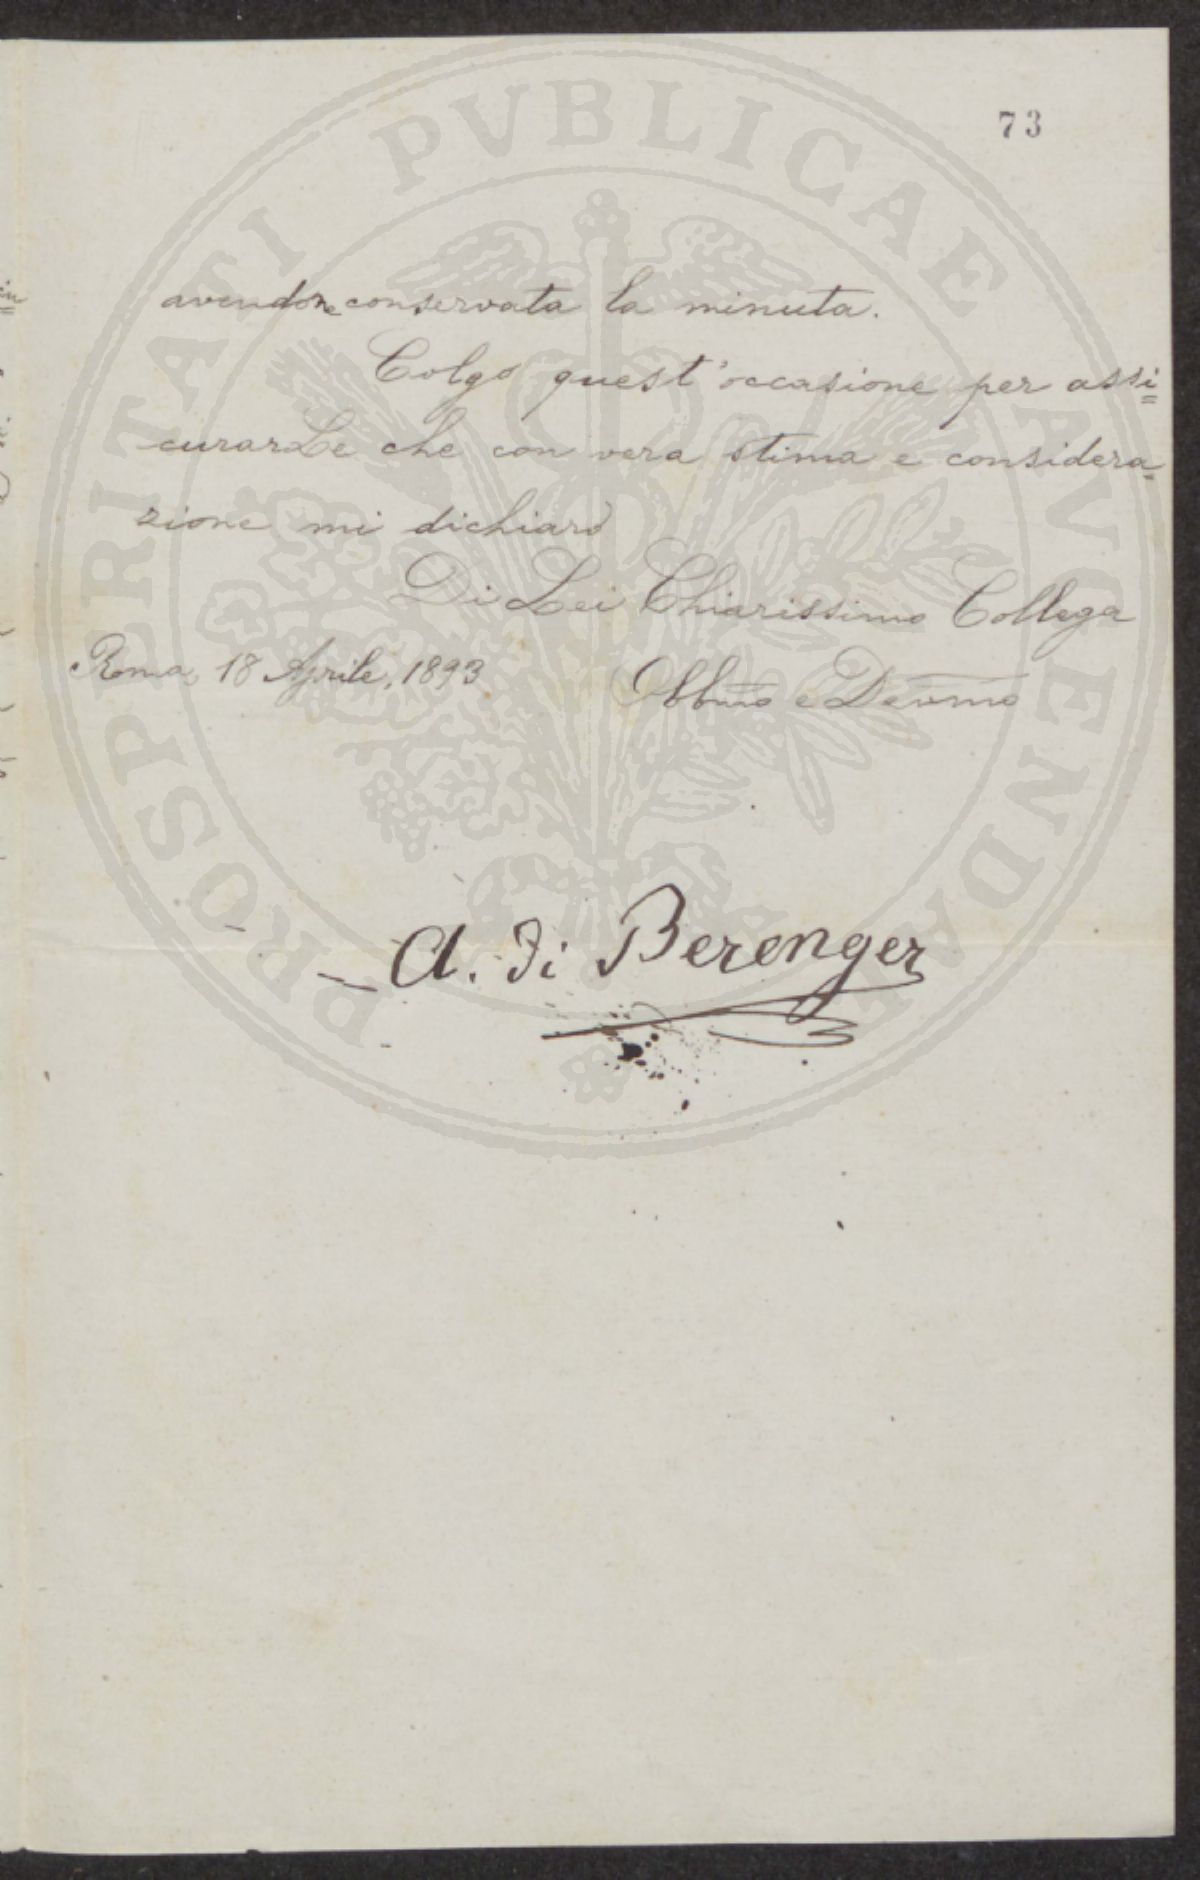 73
avendone conservata la minuta.
Colgo quest'occasione per assi=
curarLe che con vera stima e considera=
zione mi dichiaro
Di Lei Chiarissimo Collega
Roma, 18 Aprile, 1893
Obbmo e Devmo
A. di Berenger
PROSPERITATI PVBLICAE AVGENDAE